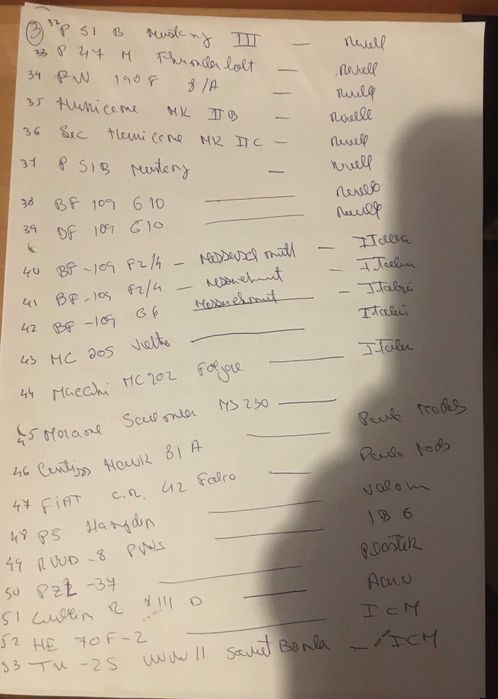 ③ 32 P 51 B Mustang III — Revell
33 P 47 M Thunderbolt — Revell
34 FW 190 F 8/A — Revell
35 Hurricane MK II B — Revell
36 Sea Hurricane MK II C — Revell
37 P 51B Mustang — Revell
38 BF 109 G10 — Revell
39 BF 109 G10 — Revell
40 BF-109 F2/4 — Messerschmitt — Italeri
41 BF-109 F2/4 — — Italeri
42 BF-109 G6 — Italeri
43 MC 205 Veltro — Italeri
44 Macchi MC 202 Folgore — Italeri
45 Morane Saulnier MS 230 —
46 Curtiss Hawk 81 A — Models
47 FIAT C.R. 42 Falco —
48 P5 Hampden — Valom
49 RWD-8 PWS — 1B6
50 PZL-37 — Plastik
51 R XIII D —
52 HE 70F-2 — ICM
53 TU-2S WWII Soviet Bomber — ICM